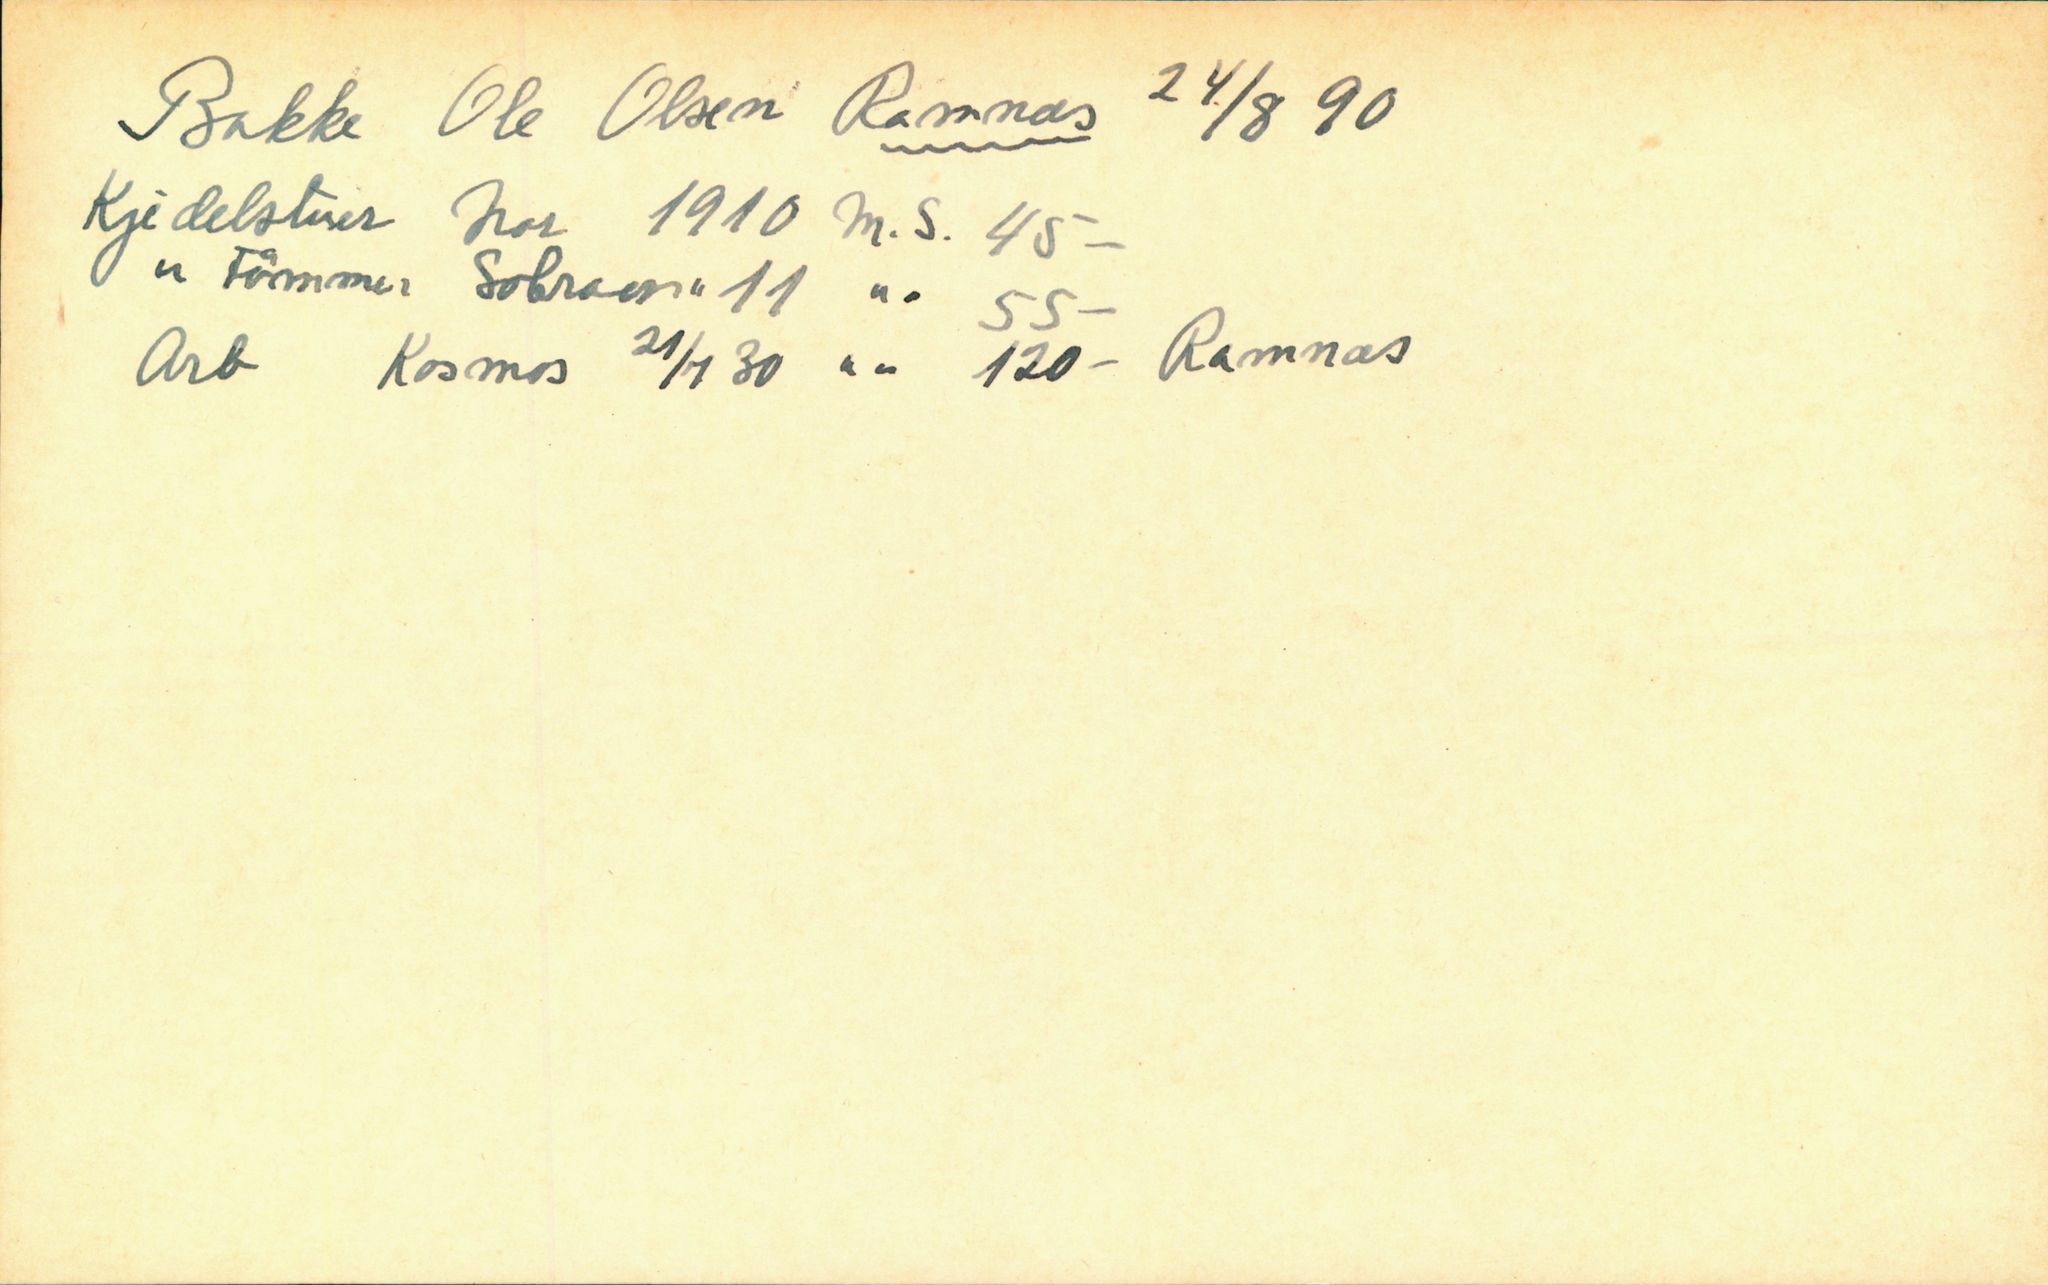 Bakke Ole Olsen Ramnæs 24/8 90
Kjedelstuer Nor 1910 M.S. 45-
" Tömmer Sobraon " 11 " " 55-
Arb Kosmos 21/7 30 " " 120- Ramnæs